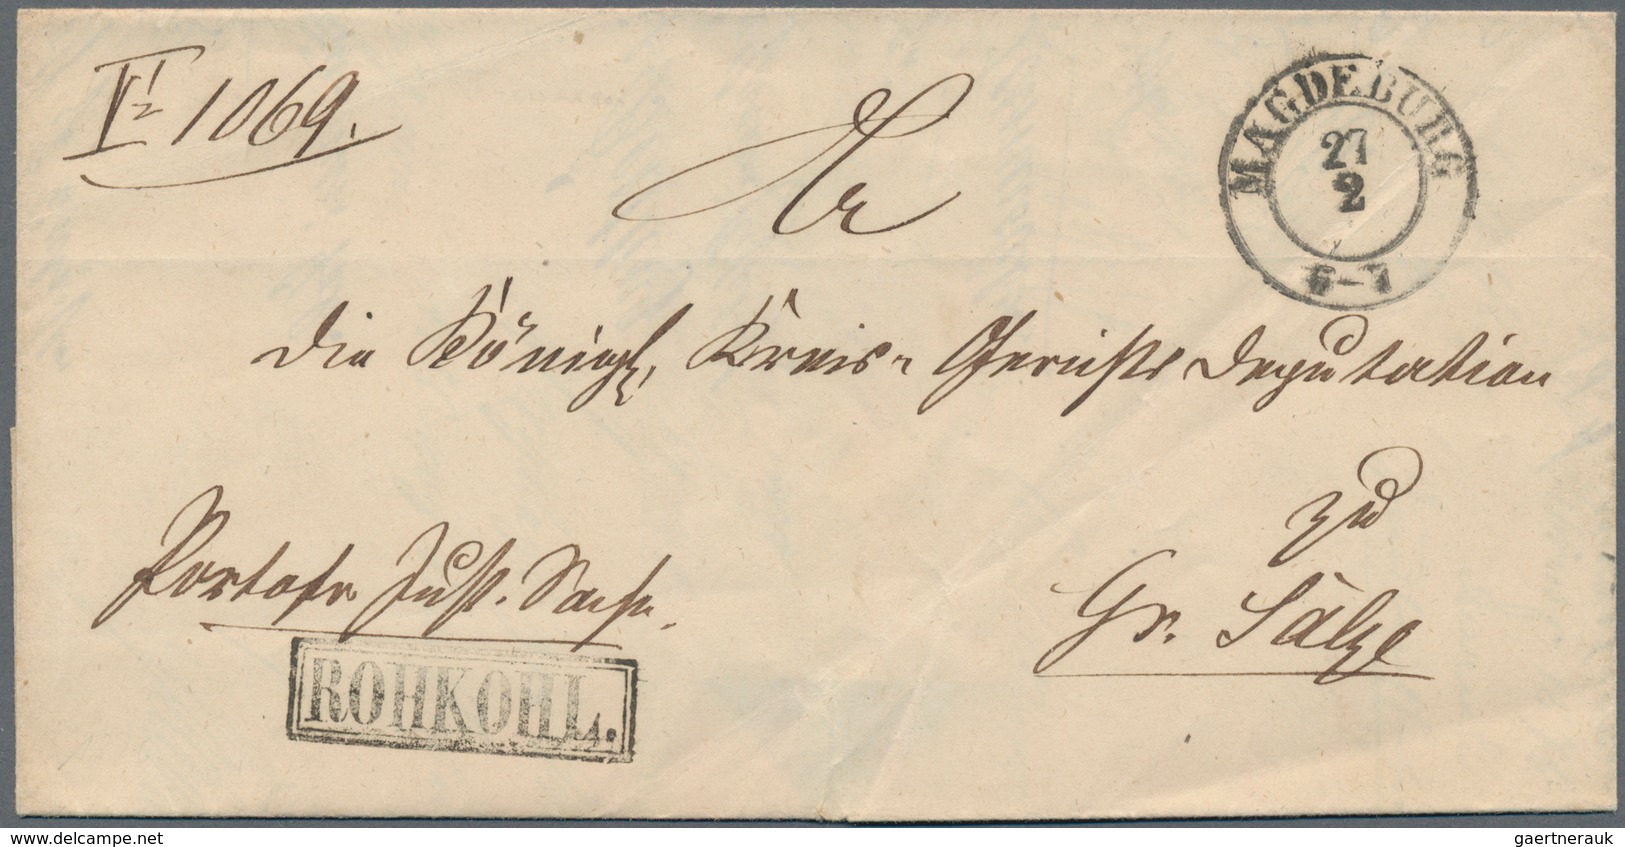 VI 1069.
An
MAGDEBURG
27
2
6-7
die Königl. Kreis-Gerichts Deputation
zu
Portofr. Just. Sache.
Gr. Sälze
ROHKOHL.
delcampe.net
gaertnerauk